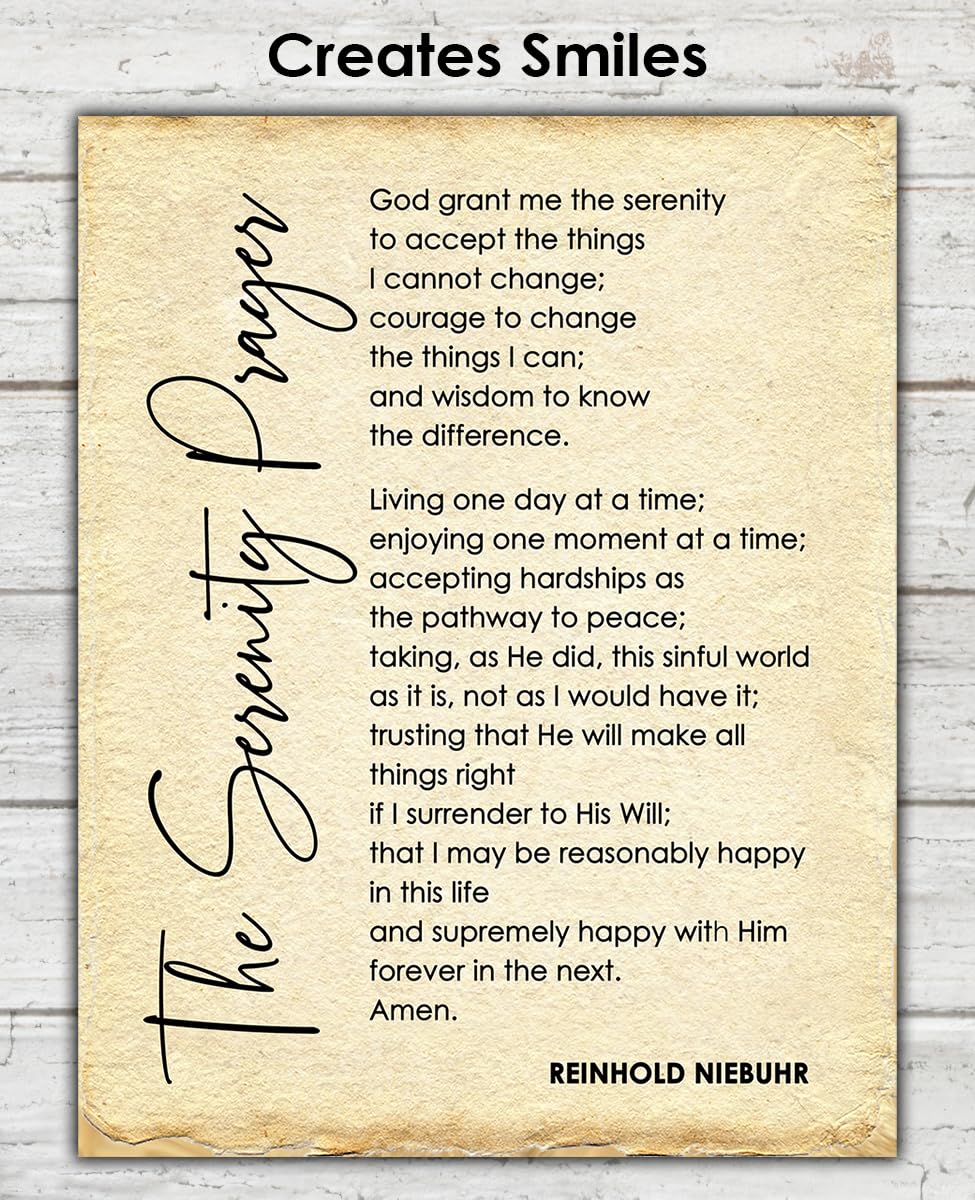 Creates Smiles
The Serenity Prayer
God grant me the serenity
to accept the things
I cannot change;
courage to change
the things I can;
and wisdom to know
the difference.
Living one day at a time;
enjoying one moment at a time;
accepting hardships as
the pathway to peace;
taking, as He did, this sinful world
as it is, not as I would have it;
trusting that He will make all
things right
if I surrender to His Will;
that I may be reasonably happy
in this life
and supremely happy with Him
forever in the next.
Amen.
REINHOLD NIEBUHR